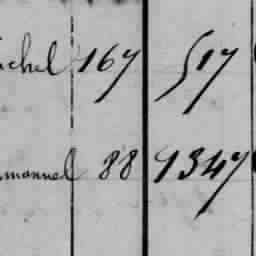 ichel 167 517
manuel 88 1347